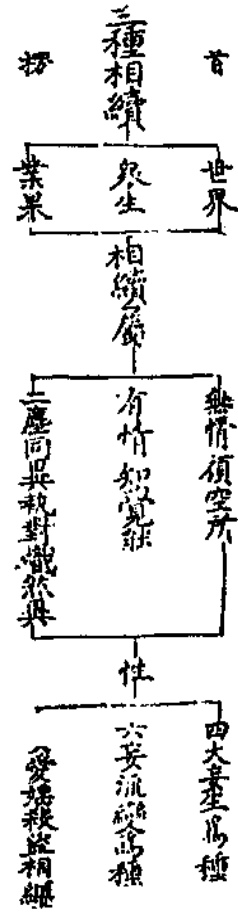 首楞
三種相續
世界
眾生
業果
相續屬
無情頑空所
有情知覺能
二塵同異執對熾然興
性
四大妄生為種
六妄流為種
愛婬殺盜相纏